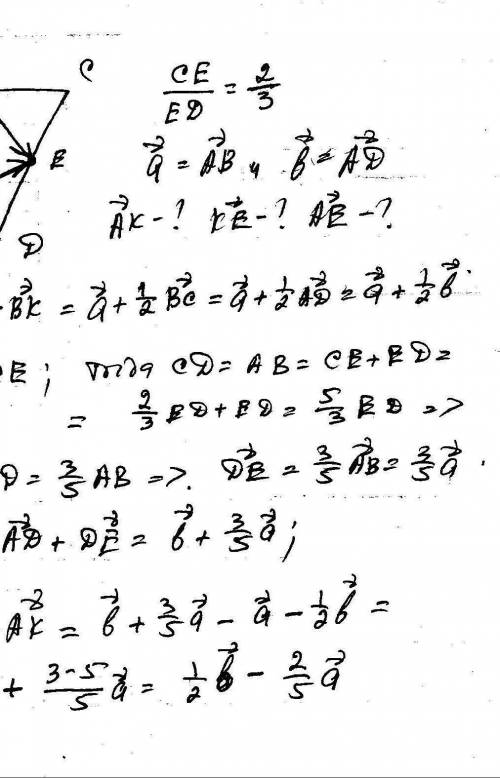 C
CE/ED = 2/3
E
a⃗ = AB⃗ и b⃗ = AD⃗
AK⃗ - ? KE⃗ - ? AE⃗ - ?
D
BK⃗ = a⃗ + 1/2 BC⃗ = a⃗ + 1/2 AD⃗ = a⃗ + 1/2 b⃗.
CE; тогда CD = AB = CE + ED =
= 2/3 ED + ED = 5/3 ED =>
D = 3/5 AB =>. DE⃗ = 3/5 AB⃗ = 3/5 a⃗.
AD⃗ + DE⃗ = b⃗ + 3/5 a⃗;
AK⃗ = b⃗ + 3/5 a⃗ - a⃗ - 1/2 b⃗ =
+ (3-5)/5 a⃗ = 1/2 b⃗ - 2/5 a⃗